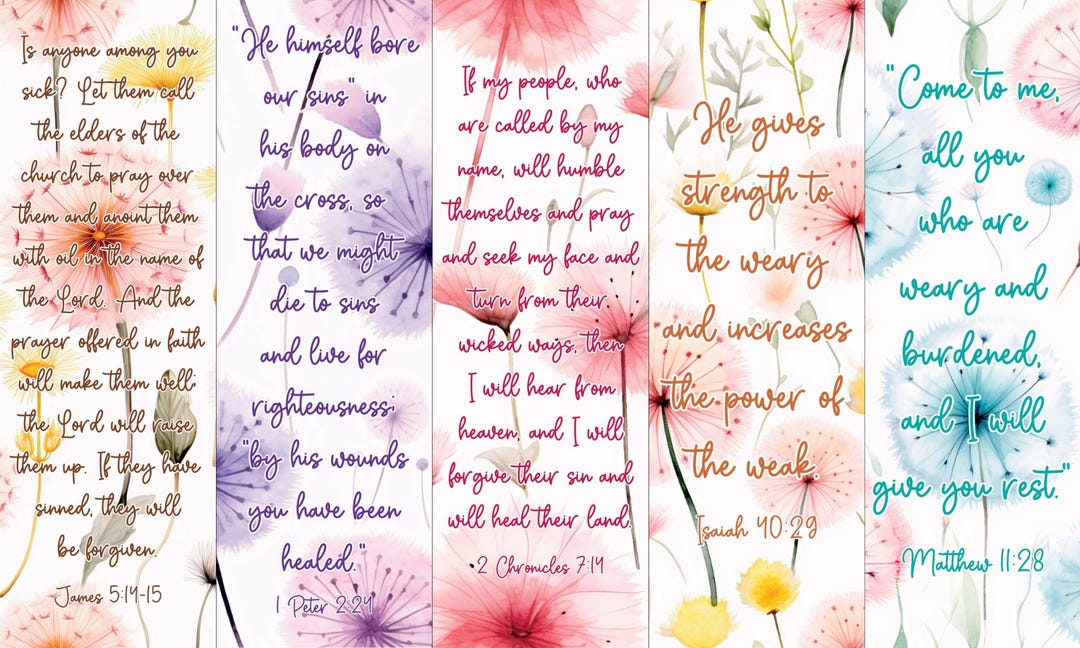 Is anyone among you
sick? Let them call
the elders of the
church to pray over
them and anoint them
with oil in the name of
the Lord. And the
prayer offered in faith
will make them well;
the Lord will raise
them up. If they have
sinned, they will
be forgiven.
James 5:14-15
"He himself bore
our sins" in
his body on
the cross, so
that we might
die to sins
and live for
righteousness;
"by his wounds
you have been
healed."
1 Peter 2:24
If my people, who
are called by my
name, will humble
themselves and pray
and seek my face and
turn from their
wicked ways, then
I will hear from
heaven, and I will
forgive their sin and
will heal their land.
2 Chronicles 7:14
He gives
strength to
the weary
and increases
the power of
the weak.
Isaiah 40:29
"Come to me,
all you
who are
weary and
burdened,
and I will
give you rest."
Matthew 11:28